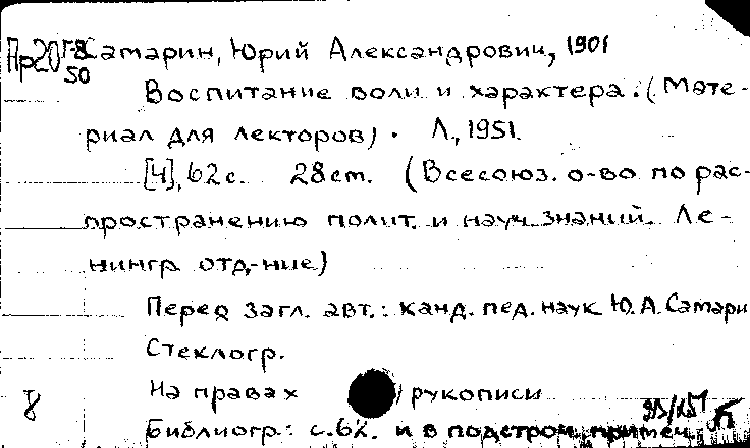 Пр20 Г-8 Самарин, Юрий Александрович, 1901
50
Воспитание воли и характера. (Мате-
риал для лекторов). Л., 1951.
[4], 62 с. 28 ст. (Всесоюз. о-во по рас-
пространению полит. и науч. знаний. Ле-
нингр. отд-ние)
Перед загл. авт.: канд. пед. наук Ю. А. Самарин
Стеклогр.
На правах рукописи
8
Библиогр.: с. 62. и в подстроч. примеч.